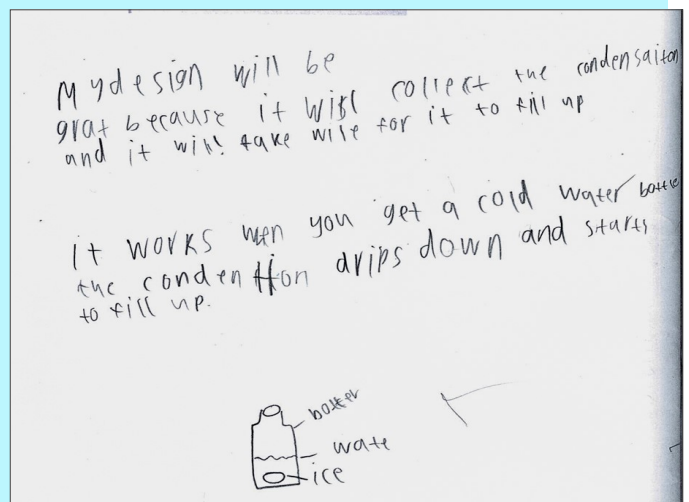 My design will be
grat because it will collect the condensaiton
and it will take wile for it to fill up
it works wen you get a cold water bottle
the condenttion drips down and starts
to fill up.
botter
wate
ice